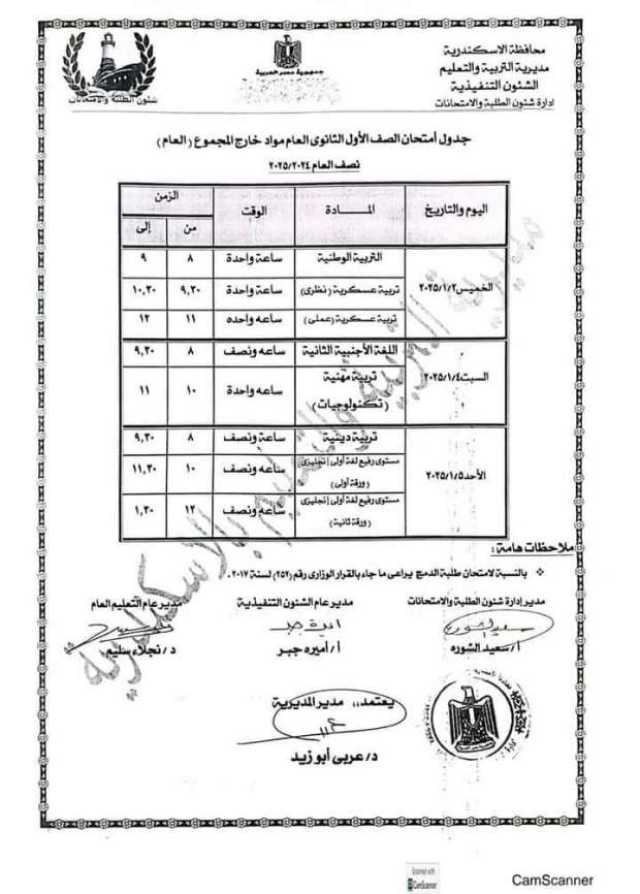 محافظة الاسكندرية
مديرية التربية والتعليم
الشئون التنفيذية
إدارة شئون الطلبة والامتحانات
جمهورية مصر العربية
شئون الطلبة والامتحانات
جدول أمتحان الصف الأول الثانوى العام مواد خارج المجموع (العام)
نصف العام ٢٠٢٥/٢٠٢٤
اليوم والتاريخ المــــادة الوقت الزمن
من إلى
الخميس ٢٠٢٥/١/٢
التربية الوطنية ساعة واحدة ٨ ٩
تربية عسكرية (نظرى) ساعة واحدة ٩,٣٠ ١٠,٣٠
تربية عسكرية (عملى) ساعة واحده ١١ ١٢
السبت ٢٠٢٥/١/٤
اللغة الأجنبية الثانية ساعه ونصف ٨ ٩,٣٠
تربية مهنية
(تكنولوجيات) ساعة واحدة ١٠ ١١
الأحد ٢٠٢٥/١/٥
تربية دينية ساعة ونصف ٨ ٩,٣٠
مستوى رفيع لغة أولى إنجليزى
(ورقة أولى) ساعه ونصف ١٠ ١١,٣٠
مستوى رفيع لغة أولى إنجليزى
(ورقة ثانية) ساعه ونصف ١٢ ١,٣٠
ملاحظات هامة :
بالنسبة لامتحان طلبة الدمج يراعى ما جاء بالقرار الوزارى رقم (٢٥٢) لسنة ٢٠١٧.
مدير إدارة شئون الطلبة والامتحانات مدير عام الشئون التنفيذية مدير عام التعليم العام
أ/ سعيد الشوره أ/ أميره جبر د/ نجلاء سليم
يعتمد،، مدير المديرية
د/ عربى أبوزيد
مديرية التربية والتعليم بالاسكندرية
Scanned with
CamScanner
CamScanner